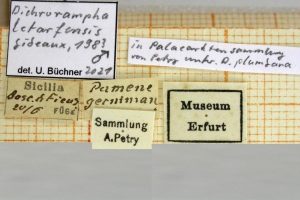 Dichrorampha
letarfensis
Gibeaux, 1983
♂
det. U. Büchner 2021
in Palaearktensammlung
von Petry unter D. plumbana
Sicilia
Bosc. d. Ficuz
20/6
Pamene
germman
Sammlung
A. Petry
Museum
Erfurt